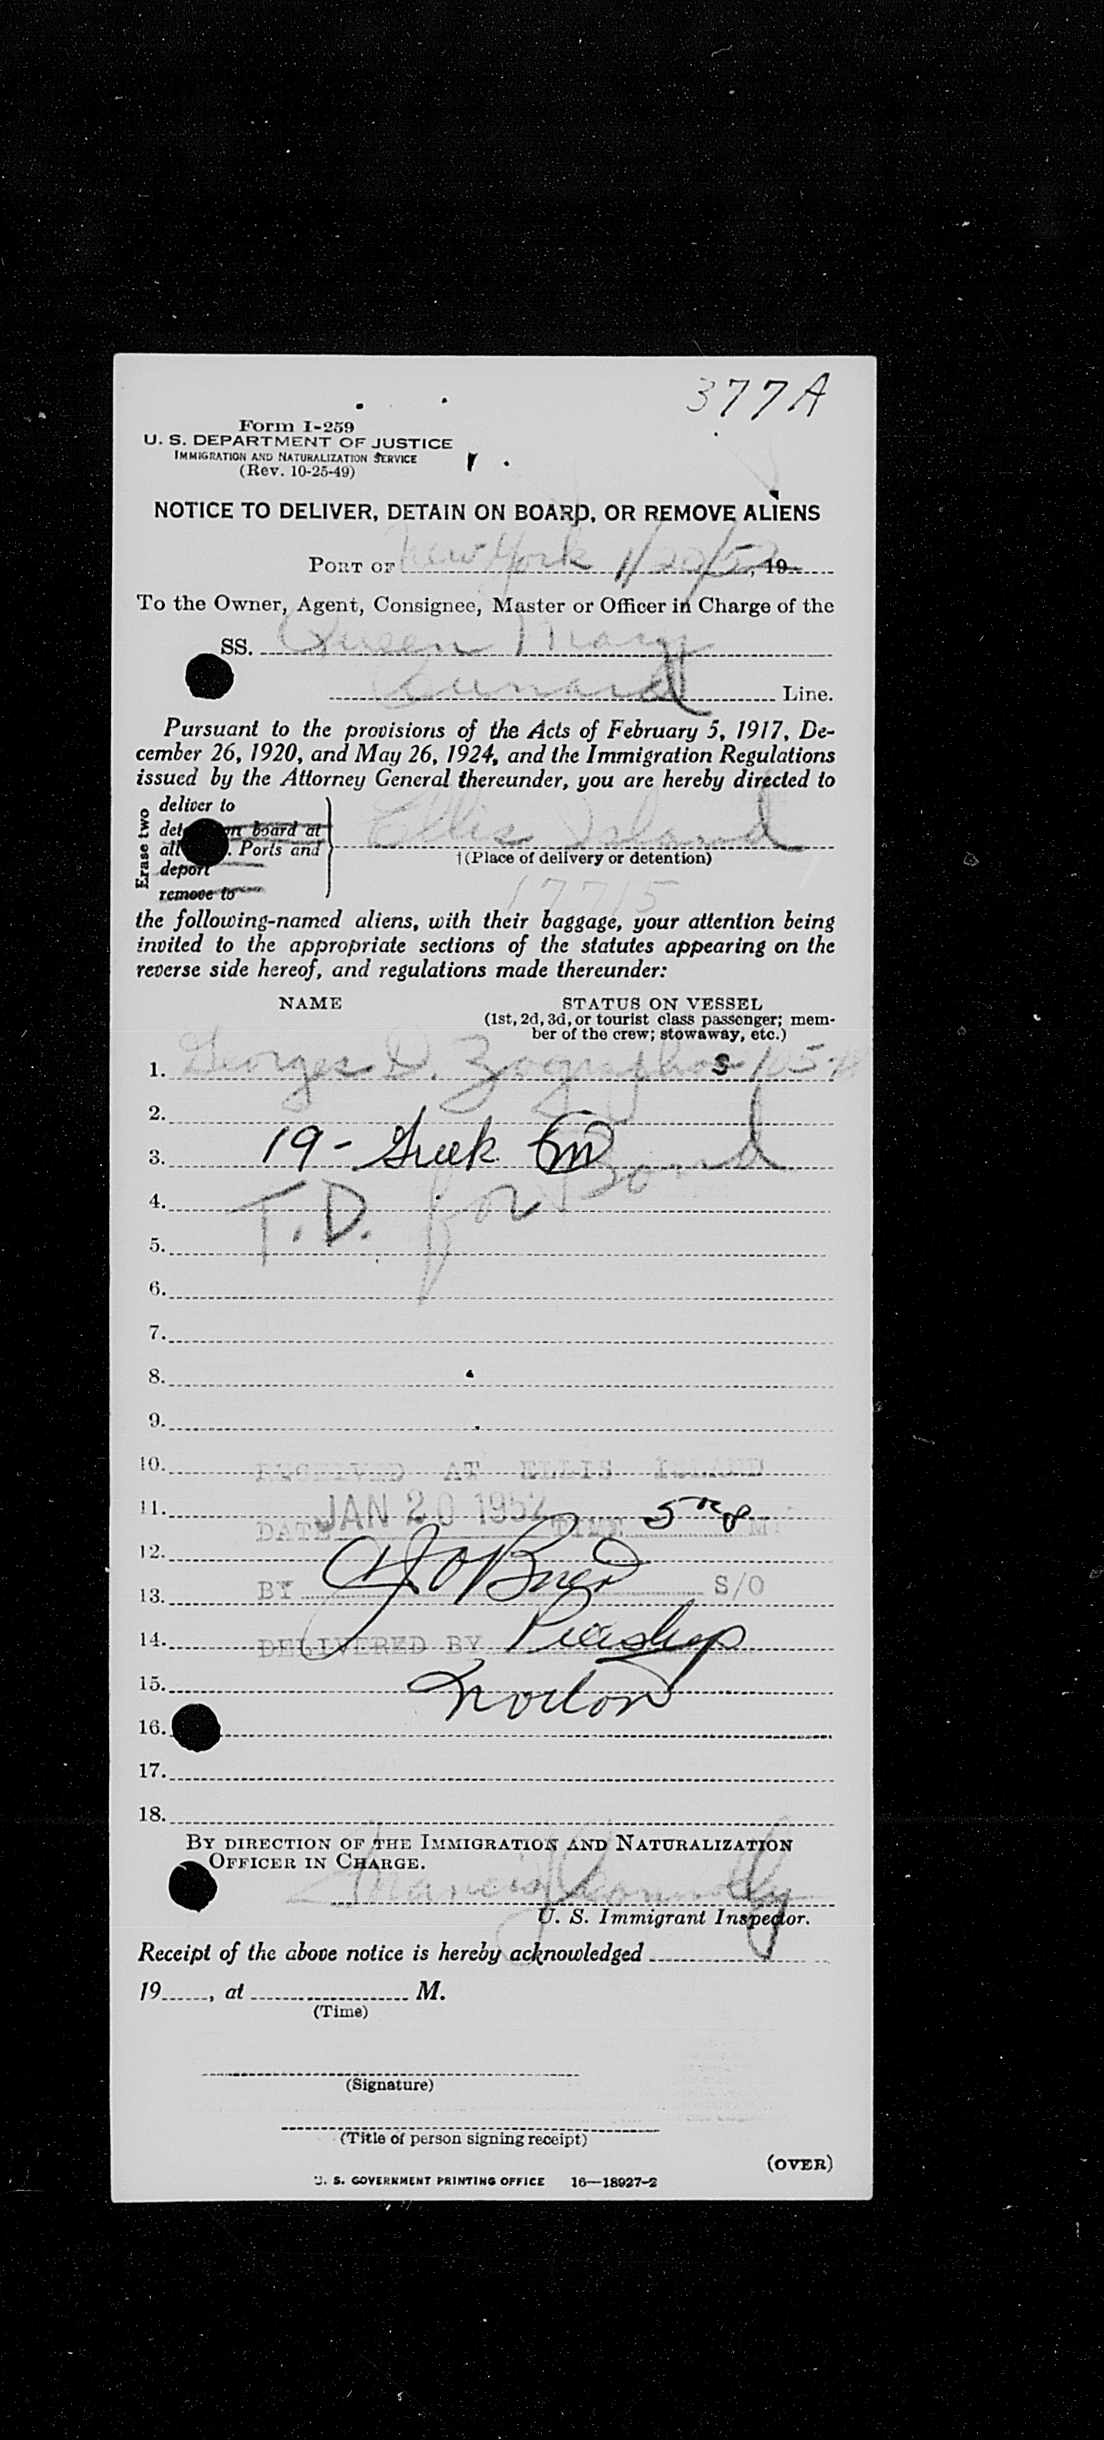 377A
Form I-259
U. S. DEPARTMENT OF JUSTICE
IMMIGRATION AND NATURALIZATION SERVICE
(Rev. 10-25-49)
NOTICE TO DELIVER, DETAIN ON BOARD, OR REMOVE ALIENS
PORT OF New York 1/20/52, 19
To the Owner, Agent, Consignee, Master or Officer in Charge of the
SS. Queen Mary
Cunard Line.
Pursuant to the provisions of the Acts of February 5, 1917, De-
cember 26, 1920, and May 26, 1924, and the Immigration Regulations
issued by the Attorney General thereunder, you are hereby directed to
Erase two
deliver to
det on board at
all . Ports and
deport
remove to
Ellis Island
†(Place of delivery or detention)
17715
the following-named aliens, with their baggage, your attention being
invited to the appropriate sections of the statutes appearing on the
reverse side hereof, and regulations made thereunder:
NAME STATUS ON VESSEL
(1st, 2d, 3d, or tourist class passenger; mem-
ber of the crew; stowaway, etc.)
1. Georges D. Zographos
2.
3. 19 - Greek m
4. T.D. for Bond
5.
6.
7.
8.
9.
10. RECEIVED AT ELLIS ISLAND
11. DATE JAN 20 1952 TIME M
12.
13. BY S/O
14. DELIVERED BY
15. Norton
16.
17.
18.
BY DIRECTION OF THE IMMIGRATION AND NATURALIZATION
OFFICER IN CHARGE.
Francis J Connolly
U. S. Immigrant Inspector.
Receipt of the above notice is hereby acknowledged
19 , at M.
(Time)
(Signature)
(Title of person signing receipt)
(OVER)
U. S. GOVERNMENT PRINTING OFFICE 16—18927-2